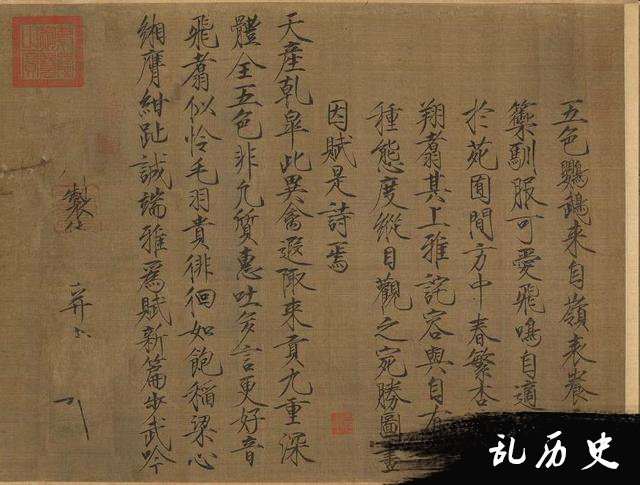 五色鸚鵡來自嶺表養
籞馴服可愛飛鳴自適
於苑囿間方中春繁杏
翔翥其上雅詫容與自有
種態度縱目觀之宛勝圖畫
因賦是詩焉
天產乾皋此異禽遐陬來貢九重深
體全五色非凡質惠吐多言更好音
飛翥似憐毛羽貴徘徊如飽稻粱心
緗膺紺趾誠端雅為賦新篇步武吟
製
乱历史